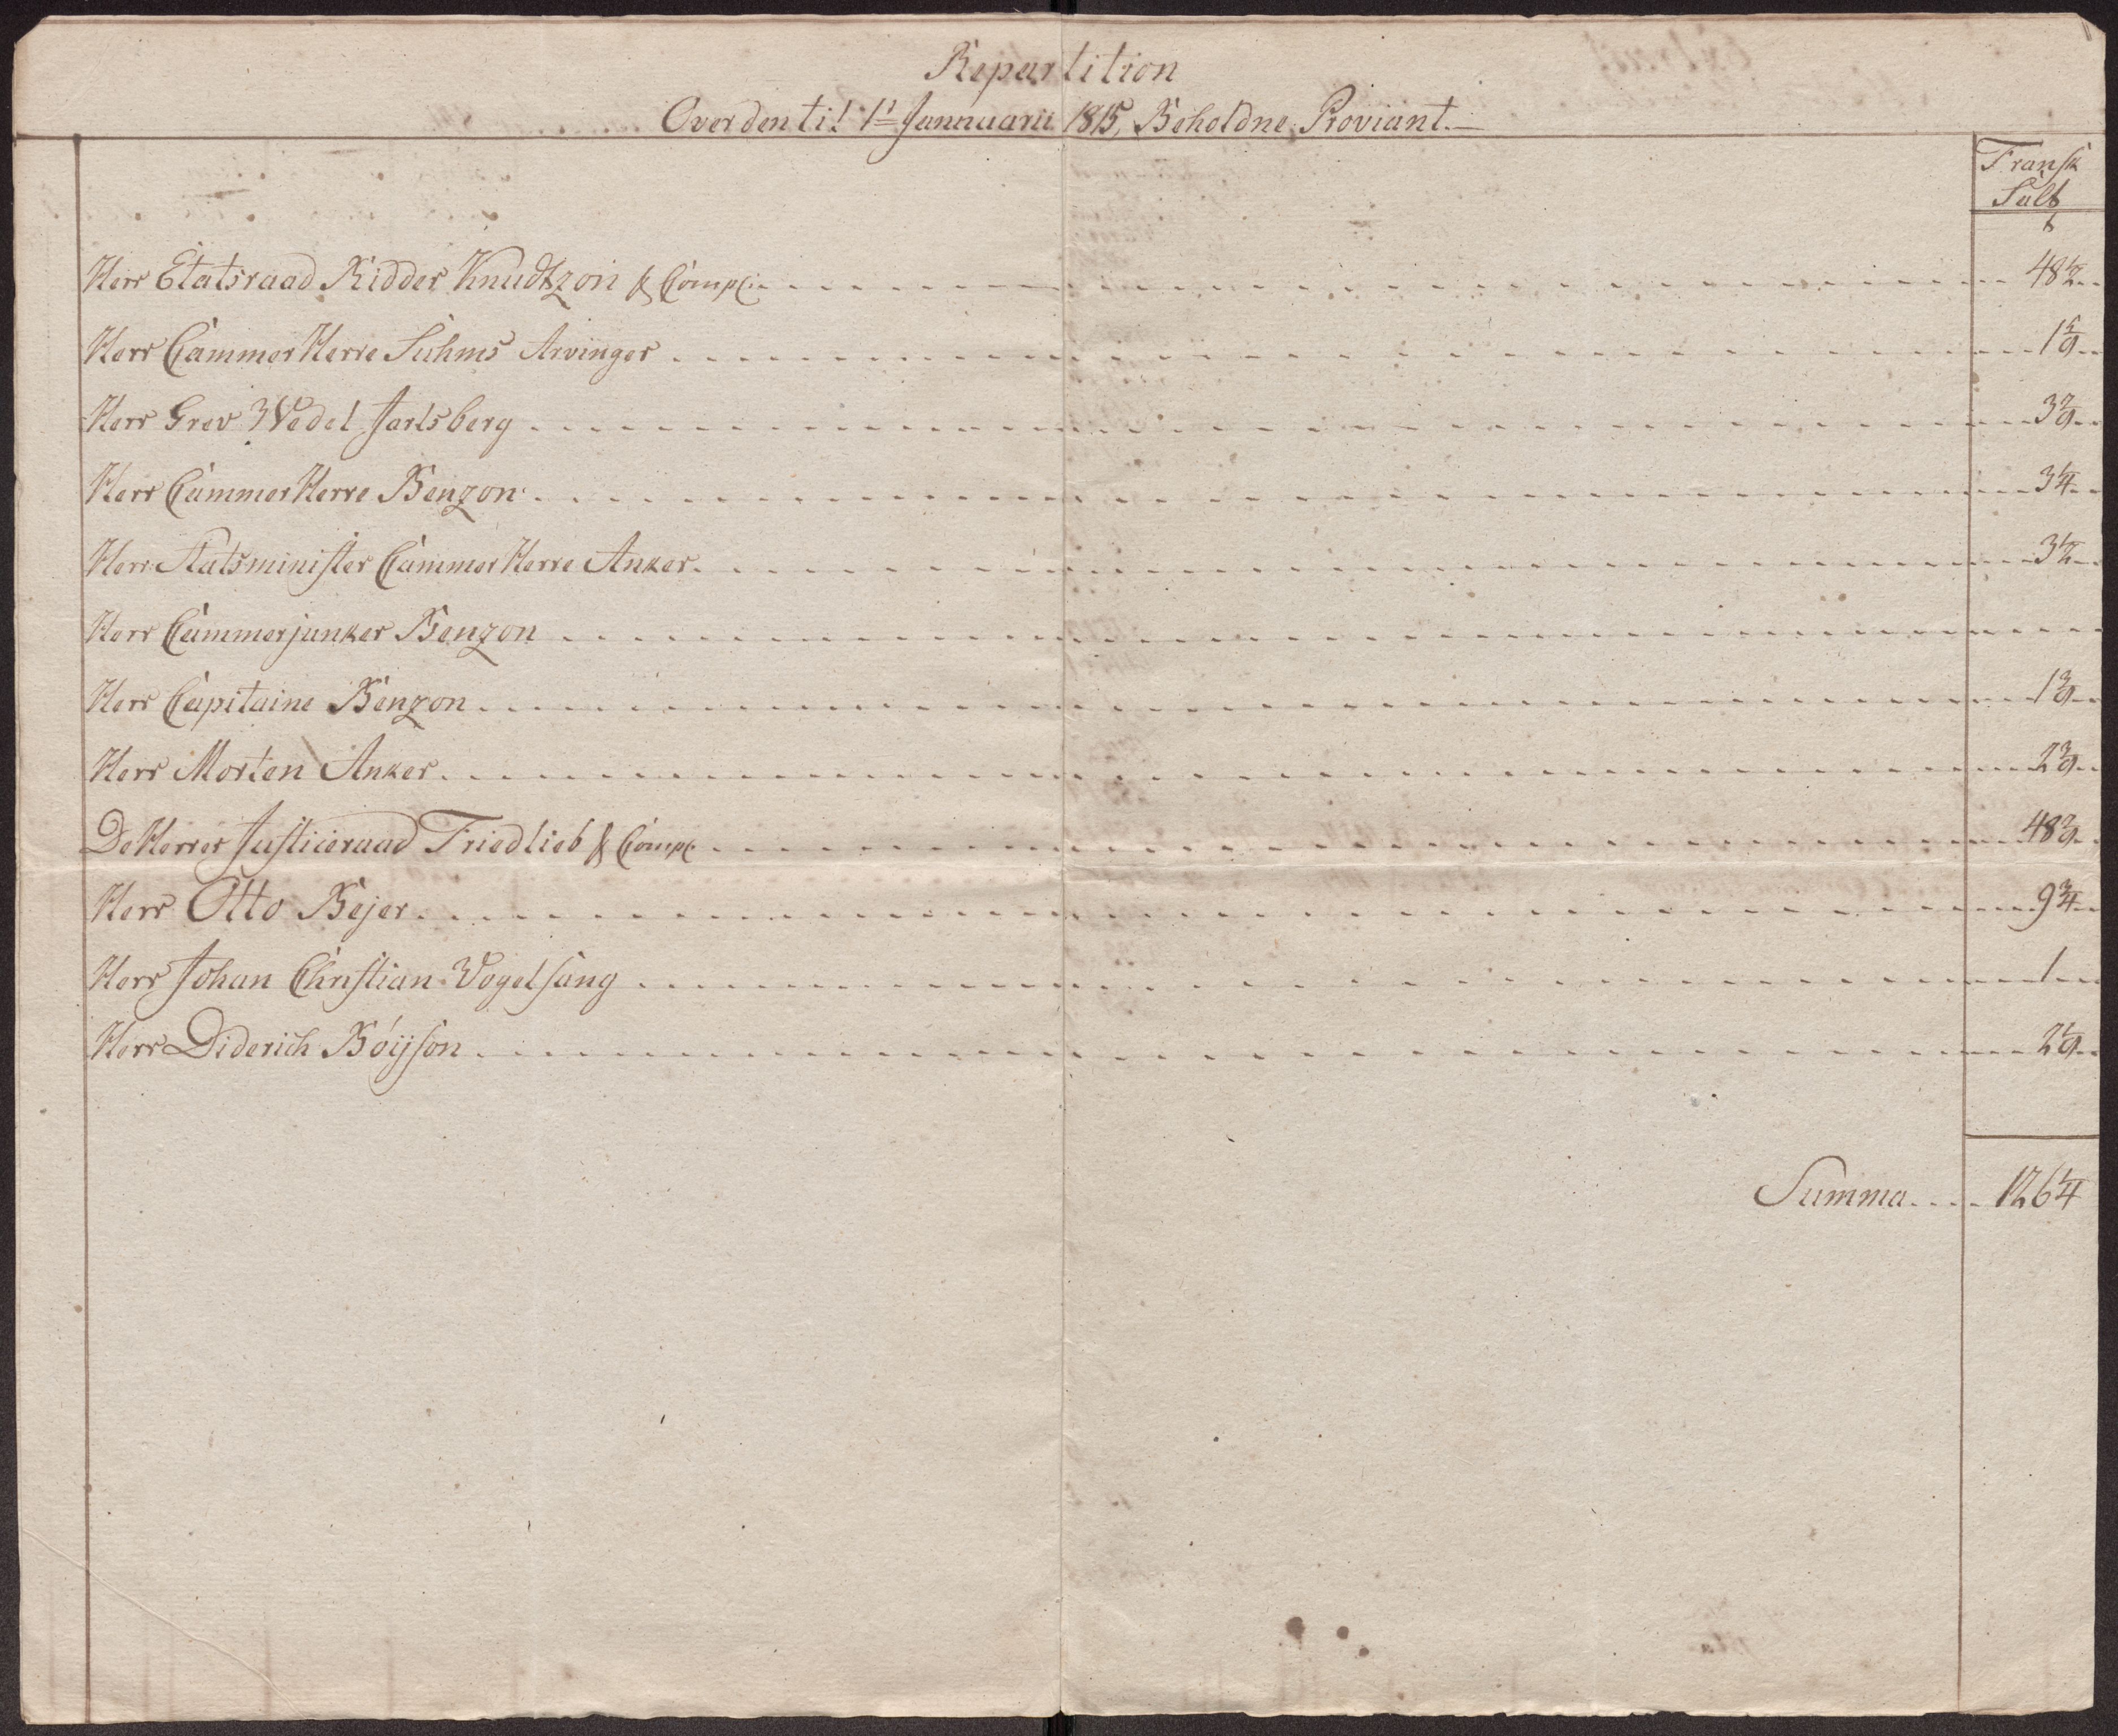 Repartition
Over den til 1ᵗ Jannuarii 1815, Beholdne Proviant.
Fransk
Salt
Herr Etatsraad Ridder Knudtzon & Compe 48 1/2
Herr CammerHerre Suhms Arvinger
Herr Grev Wedel Jarlsberg
Herr CammerHerre Benzon 3 1/4
Herr Statsminister CammerHerre Anker 3 1/2
Herr Cammerjunker Benzon
Herr Capitaine Benzon
Herr Morten Anker
De Herrer Justiceraad Friedlieb & Compe
Herr Otto Bejer 9 3/4
Herr Johan Christian Vogelsang 1
Herr Diderich Böijson
Summa 126 1/4